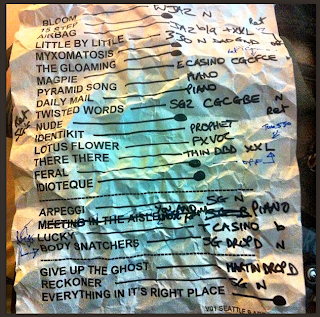 BLOOM WJAZ N
15 STEP
AIRBAG JAZ bla + XXL
LITTLE BY LITTLE 330 N DAD GAD
MYXOMATOSIS
THE GLOAMING
MAGPIE CASINO CGCFCE
PYRAMID SONG PIANO
DAILY MAIL PIANO
TWISTED WORDS SG2 CGCGBE N
NUDE
IDENTIKIT PROPHET
LOTUS FLOWER FXVOC
THERE THERE THIN DDD XXL
FERAL OFF
IDIOTEQUE
ARPEGGI SG N
MEETING IN THE AISLE PIANO
LUCKY CASINO b
BODY SNATCHERS SG DROP D N
GIVE UP THE GHOST MARTIN DROP D
RECKONER
EVERYTHING IN IT'S RIGHT PLACE
SEATTLE